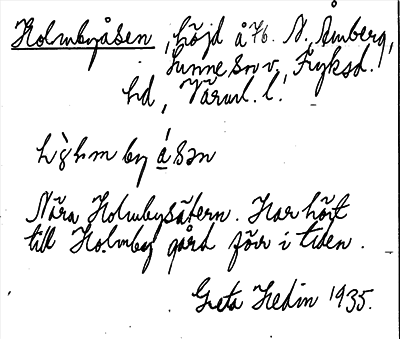 Holmbyåsen, höjd å Hb. N. Åmberg,
Sunne sn v., Fryksd.
hd, Värml. l.
hòhmbyásən
Nära Holmbysätern. Har hört
till Holmby gård förr i tiden.
Greta Hedin 1935.